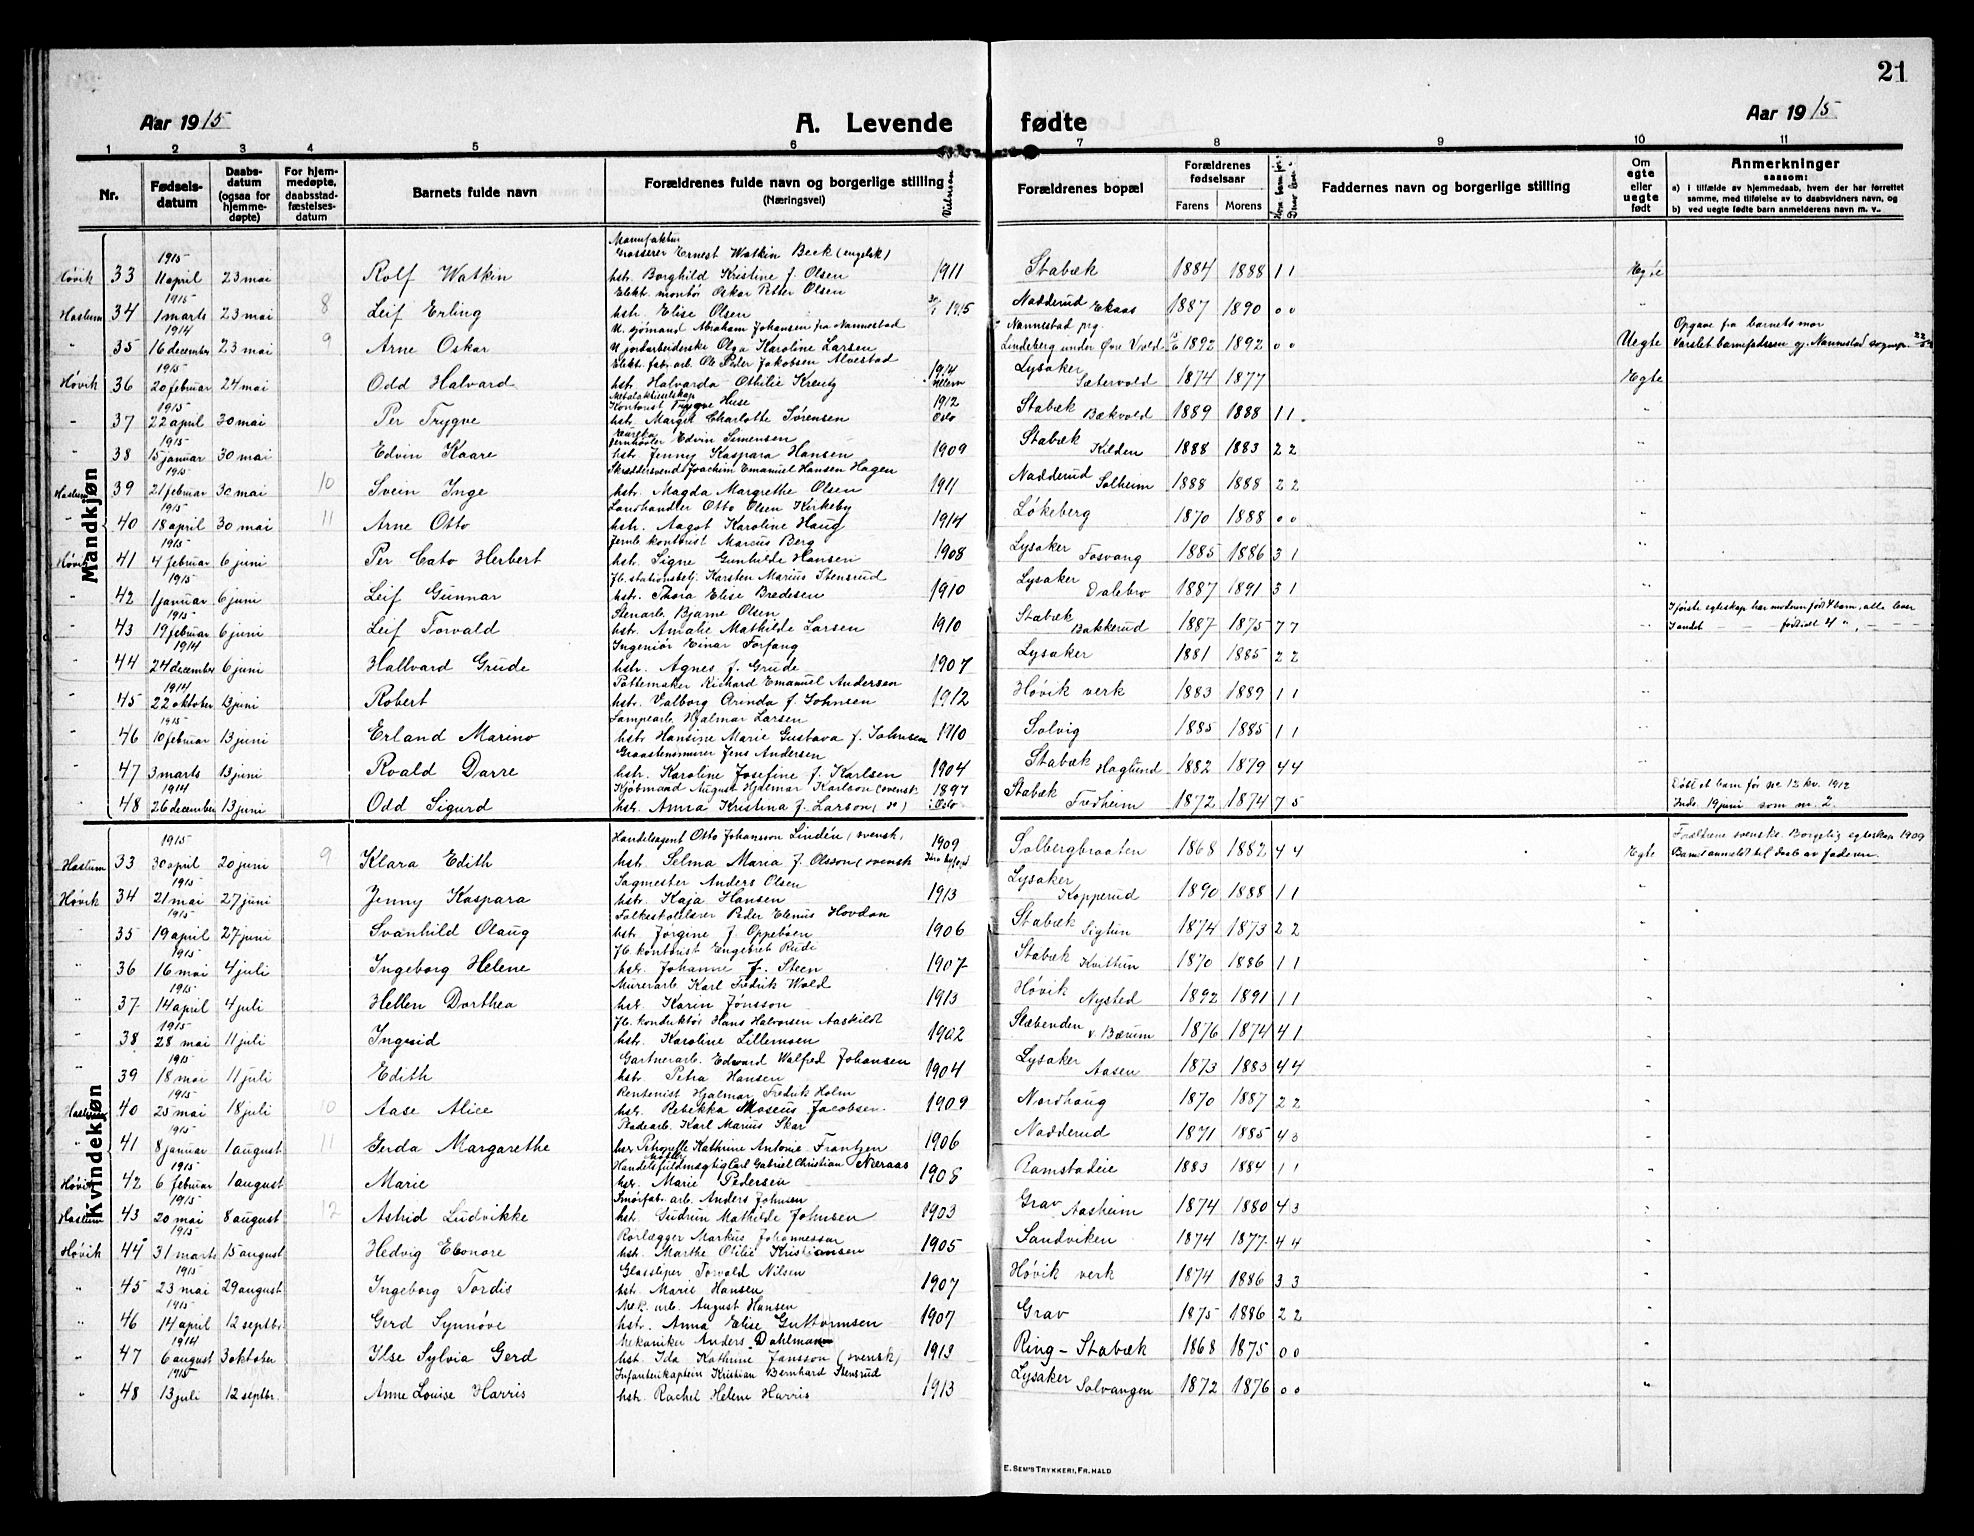 21
Aar 1915 A. Levende fødte Aar 1915
1 2 3 4 5 6 7 8 9 10 11
Nr. Fødsels-datum Daabs-datum (ogsaa for hjemme-døpte) For hjem-medøpte, daabsstad-fæstelses-datum Barnets fulde navn Forældrenes fulde navn og borgerlige stilling (Næringsvei) Vielsesaar Forældrenes bopæl Forældrenes fødselsaar Farens Morens Faddernes navn og stilling Om egte eller uegte født Anmerkninger saasom:
a) i tilfælde av hjemmedaab, hvem der har forrettet samme, med tilføielse av to daabsvidners navn, og
b) ved uegte fødte barn anmelderens navn m. v..
Mandkjøn
1915 Manufaktur
Grosserer Ernest Watkin Beck (engelsk)
Høvik 33 11 april 23 mai Rolf Watkin hstr. Borghild Kristine f. Olsen 1911 Stabæk 1884 1888 1 1 Egte
1915 Elekt. montør Oskar Petter Olsen
Haslum 34 1 marts 23 mai 8 Leif Erling hstr. Elise Olsen 1915 Nadderud Ekaas 1887 1890 0 0 "
1914 U. sjømand Abraham Johansen fra Nannestad Nannestad prg. Opgave fra barnets mor
" 35 16 december 23 mai 9 Arne Oskar U. jordarbeiderske Olga Karoline Larsen Lindeberg under Øvre Vold 1892 1892 0 0 Uegte Varslet barnefaderen gj. Nannestad sognepr.
1915 Elekt. fab. arb. Ole Peder Jakobsen Alvestad
Høvik 36 20 februar 24 mai Odd Halvard hstr. Halvarda Othilie Kreutz 1914 Lysaker Sætervold 1874 1877 Egte
1915 Metalaktieselskap Kontorist Trygve Huse
" 37 22 april 30 mai Per Trygve hstr. Margit Charlotte Sørensen 1912 Oslo Stabæk Bækvold 1889 1888 1 1
1915 Eureka Jernhøvler Edvin Simensen
" 38 15 januar 30 mai Edvin Kaare hstr. Jenny Kaspara Hansen 1909 Stabæk Kilden 1888 1883 2 2
1915 Skræddersvend Joachim Emanuel Hansen Hagen
Haslum 39 21 februar 30 mai 10 Svein Inge hstr. Magda Margrethe Olsen 1911 Nadderud Solheim 1888 1888 2 2
1915 Landhandler Otto Olsen Kirkeby
" 40 18 april 30 mai 11 Arne Otto hstr. Aagot Karoline Haug 1914 Løkeberg 1870 1888 0 0
1915 Jernb. kontorist Marcus Berg
Høvik 41 4 februar 6 juni Per Cato Herbert hstr. Signe Gunhilde Hansen 1908 Lysaker Fosvang 1885 1886 3 1
1915 Jb. stationsbetj. Karsten Marius Stensrud
" 42 1 januar 6 juni Leif Gunnar hstr. Thora Elise Bredesen 1910 Lysaker Dalebro 1887 1891 3 1
1915 Stenarb. Bjarne Olsen I første egteskap har moderen født 4 barn, alle lever
" 43 19 februar 6 juni Leif Torvald hstr. Amalie Mathilde Larsen 1910 Stabæk Bakkerud 1887 1875 7 7 I andet — — født 4 ", — — —
1914 Ingeniør Einar Forfang
" 44 24 december 6 juni Hallvard Grude hstr. Agnes f. Grude 1907 Lysaker 1881 1885 2 2
1914 Pottemaker Richard Emanuel Andersen
" 45 22 oktober 13 juni Robert hstr. Valborg Arinda f. Johnsen 1912 Høvik verk 1883 1889 1 1
1915 Lampearb. Hjalmar Larsen
" 46 10 februar 13 juni Erland Marino hstr. Hansine Marie Gustava f. Johnsen 1910 Solvig 1885 1885 1 1
Graastensmurer Jens Andersen
" 47 3 marts 13 juni Roald Dorre hstr. Karoline Josefine f. Karlsen 1904 Stabæk Haglund 1882 1879 4 4
1914 Kjøbmand August Hjalmar Karlson (svensk) Døbt et barn før se 12 kv. 1912
" 48 26 december 13 juni Odd Sigurd hstr. Anna Kristina f. Larson (do) 1897 i Oslo Stabæk Fredheim 1872 1874 7 5 Indr. 19 juni som nr. 2.
Kvindekjøn
1915 Handelsagent Otto Johansson Lindén (svensk) Forældrene svenske. Borgerlig egteskap 1909
Haslum 33 30 april 20 juni 9 Klara Edith hstr. Selma Maria f. Olsson (svensk 1909 Solbergbraaten 1868 1882 4 4 Egte Barnet anmeldt til daab av faderen.
1915 Sagmester Anders Olsen
Høvik 34 21 mai 27 juni Jenny Kaspara hstr. Kaja Hansen 1913 Lysaker Kopperud 1890 1888 1 1 "
1915 Folkeskolelærer Peder Elenius Hovdan
" 35 19 april 27 juni Svanhild Olaug hstr. Jørgine f. Oppebøen 1906 Stabæk Sigtun 1874 1873 2 2
1915 Jb. kontorist Engebret Rudi
" 36 16 mai 4 juli Ingeborg Helene hstr. Johanne f. Steen 1907 Stabæk Kvittun 1870 1886 1 1
1915 Murerarb. Karl Fredrik Wold
" 37 14 april 4 juli Hellen Dorthea hstr. Karin Jønsson 1913 Høvik Nysted 1892 1891 1 1
1915 Jb. konduktør Hans Halvorsen Aaskildt
" 38 28 mai 11 juli Ingrid hstr. Karoline Lillemoen 1902 Slæbenden v. Bærum 1876 1874 4 1
1915 Gartnerarb. Edward Walfred Johansen
" 39 18 mai 11 juli Edith hstr. Petra Hansen 1904 Lysaker Aasen 1873 1883 4 4
1915 Rentenist Hjalmar Fredrik Holm
Haslum 40 25 mai 18 juli 10 Aase Alice hstr. Rebekka Moseus Jacobsen 1909 Nordhaug 1870 1887 2 2
1915 Karl Marius Skar
" 41 8 januar 1 august 11 Gerda Margarethe hstr. Petronelle Kathrine Antonie Frantzen 1906 Nadderud 1871 1885 4 3
1915 Handelsfuldmægtig Carl Gabriel Christian Møller Næraas
Høvik 42 6 februar 1 august Marie hstr. Marie Pedersen 1908 Ramstadeie 1883 1884 1 1
1915 Smørfab. arb. Anders Johnsen
Haslum 43 20 mai 8 august 12 Astrid Ludvikke hst. Gudrun Mathilde Johnsen 1903 Grav Aasheim 1874 1880 4 3
1915 Rørlægger Markus Johannessen
Høvik 44 31 marts 15 august Hedvig Eleonore hst. Marthe Otilie Kristiansen 1905 Sandviken 1874 1877 4 4
1915 Glassliper Torvald Nilsen
" 45 23 mai 29 august Ingeborg Tordis hst. Marie Hansen 1907 Høvik verk 1874 1886 3 3
1915 Mek. arb. August Hansen
" 46 14 april 12 septbr. Gerd Synnøve hst. Anna Elise Guttormsen 1907 Grav 1875 1886 2 2
1914 Mekaniker Anders Dahlman
" 47 6 august 3 oktober Ilse Sylvia Gerd hst. Ida Kathrine Jansson (svensk) 1913 Ring - Stabæk 1868 1875 0 0
1915 Infanterikaptein Kristian Bernhard Stensrud
" 48 13 juli 12 septbr. Anne Louise Harris hst. Rachel Helene Harris 1913 Lysaker Solvangen 1872 1876 0 0 "
E. SEM'S TRYKKERI, FR. HALD